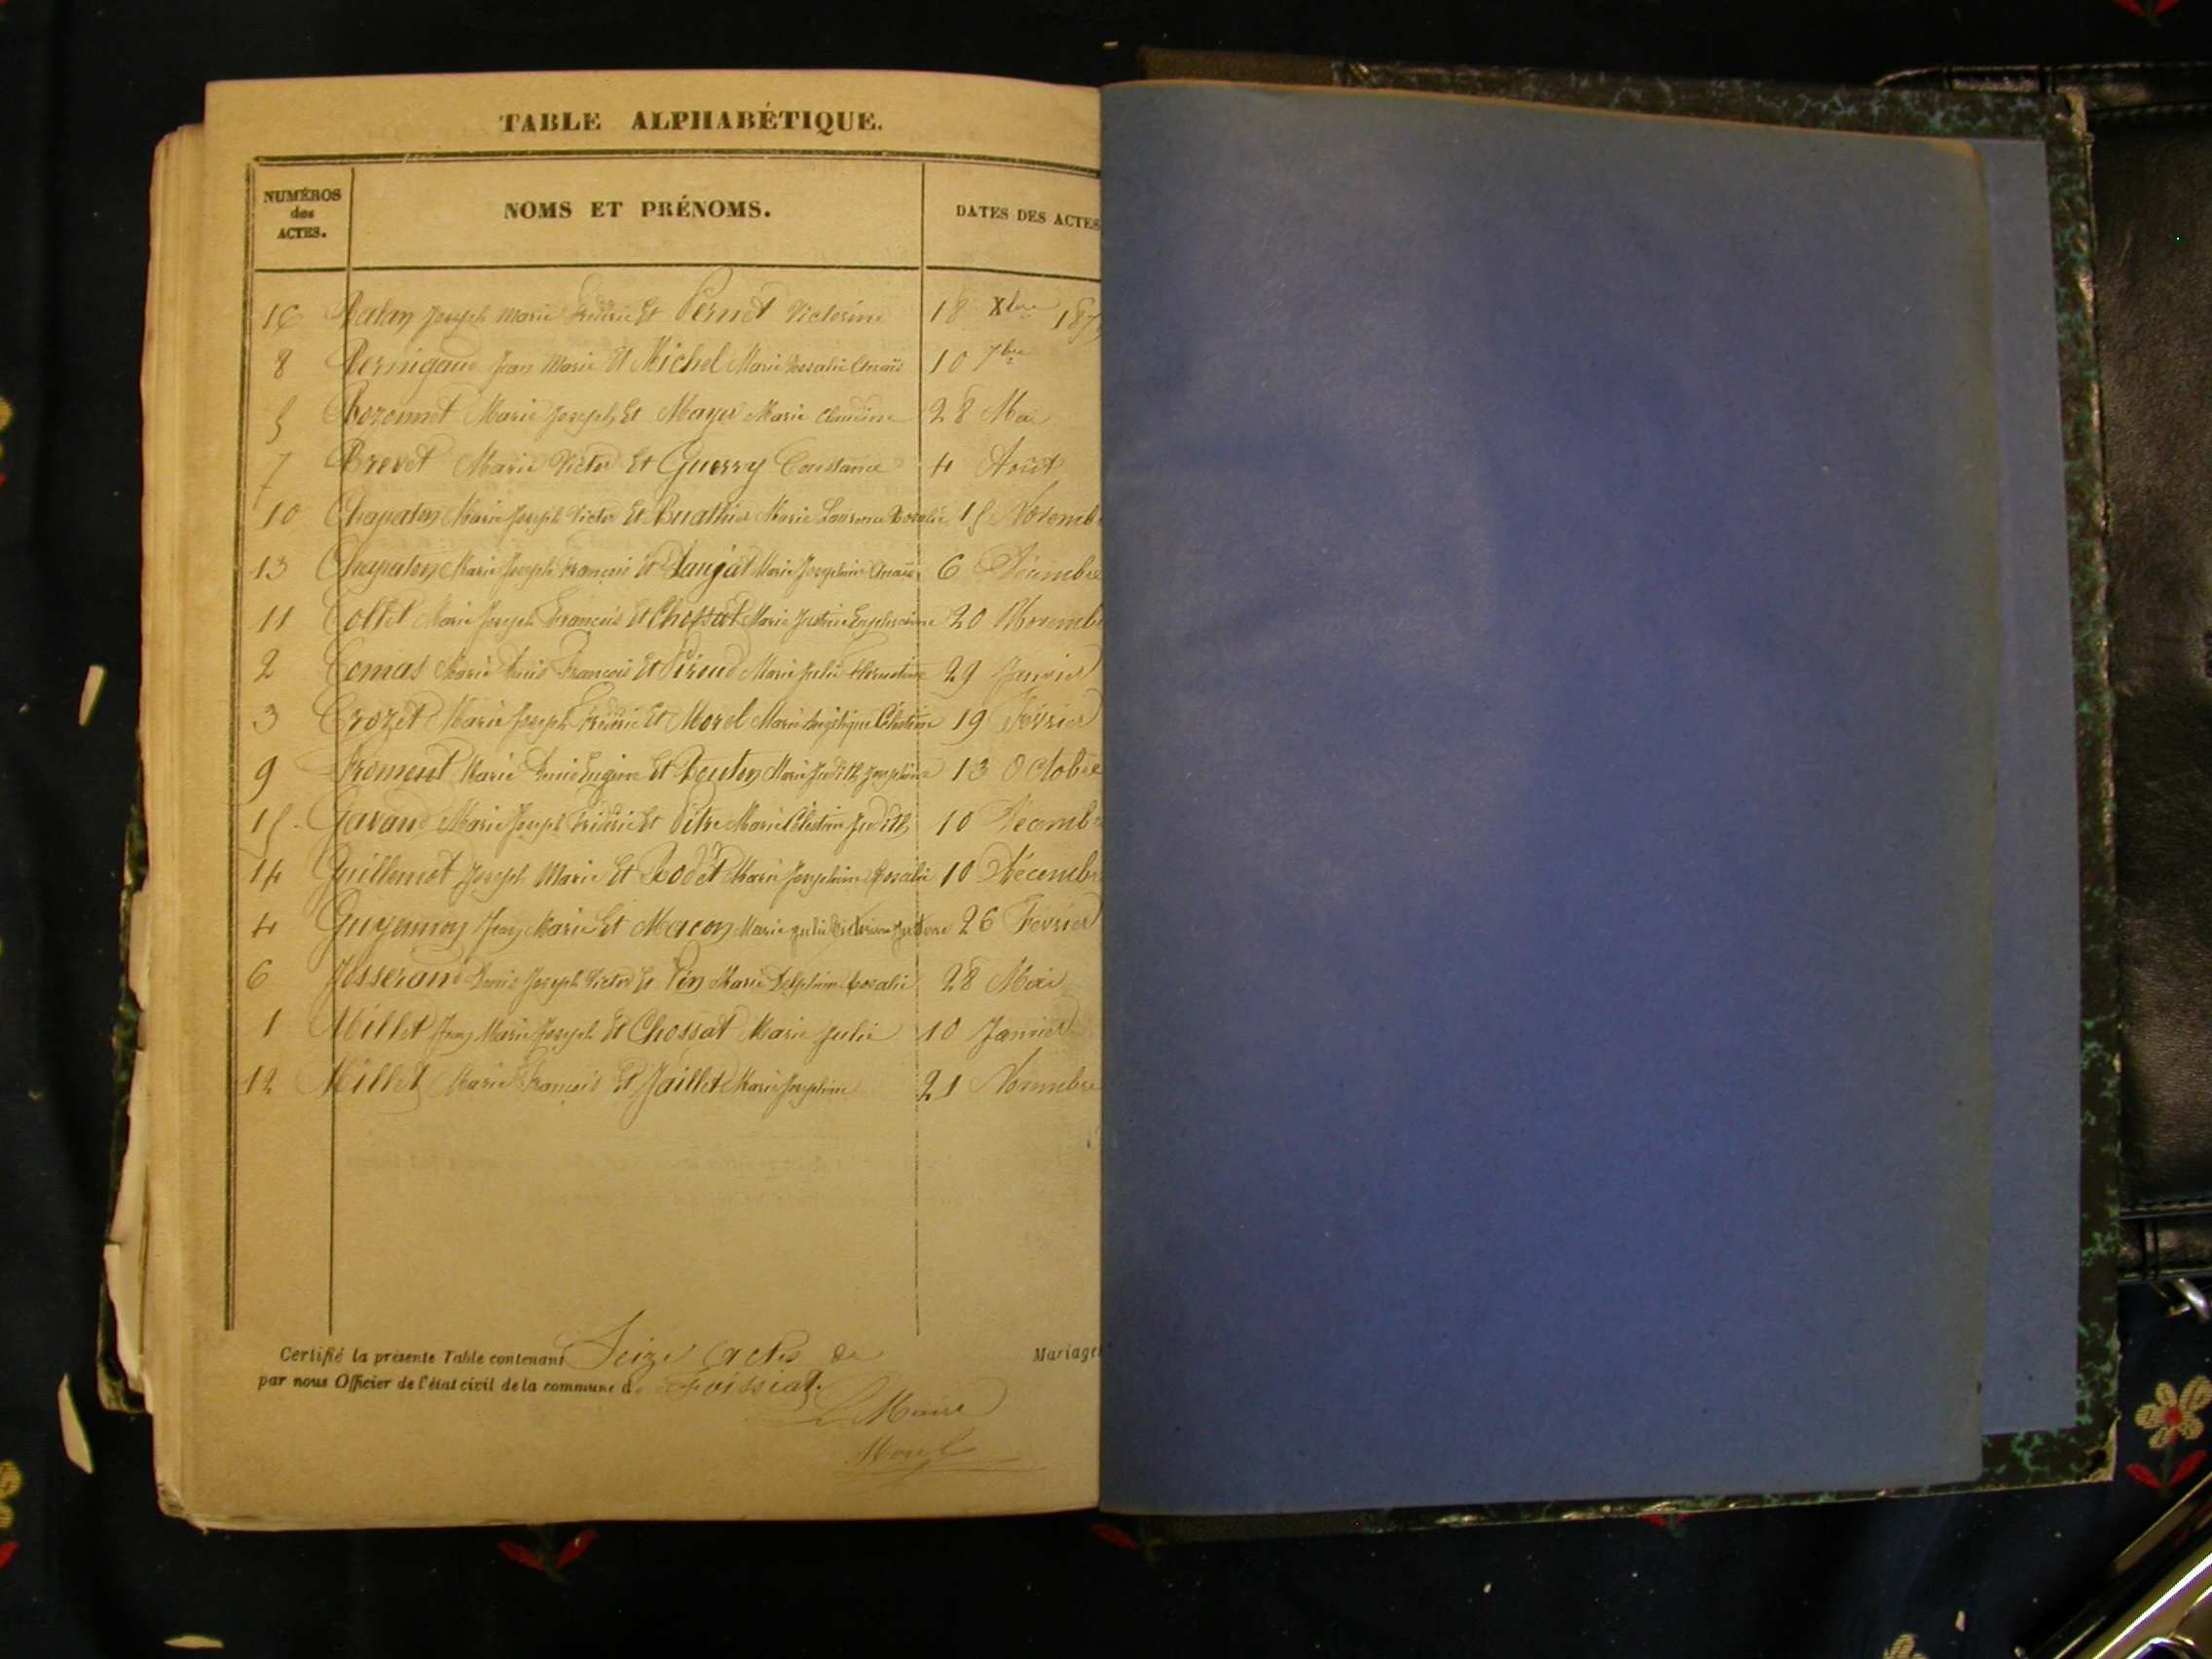 TABLE ALPHABÉTIQUE.
NUMÉROS des ACTES. NOMS ET PRÉNOMS. DATES DES ACTES
16 Joseph Marie Frédéric Et Pernet Victorine 18 Xbre 187
8 Bernigaud Jean Marie Et Michel Marie Rosalie Anaïs 10 7bre
5 Boronnet Marie Joseph Et Mayer Marie Claudine 28 Mai
7 Brevet Marie Victor Et Guerry Constance 4 Août
10 Chapaton Marie Joseph Victor Et Buathier Marie Laurence Rosalie 15 Novemb
13 Chapaton Marie Joseph François Et Daujat Marie Josephine Anaïs 6 Décembre
11 Collet Marie Joseph François Et Chossat Marie Justine Euphrosine 20 Novemb
2 Comas Marie Denis François Et Piroud Marie Julie 29 Janvier
3 Crozet Marie Joseph Frédéric Et Morel Marie Angélique Célestine 19 Février
9 Froment Marie Denis Eugène Et Bouton Marie Judith Josephine 13 Octobre
15 Gavand Marie Joseph Frédéric Et Pitre Marie Célestine Judith 10 Décemb
14 Guillemot Joseph Marie Et Rodet Marie Josephine Rosalie 10 Décembr
4 Guyennon Jean Marie Et Macon Marie Julie 26 Février
6 Josserand Denis Joseph Victor Et Pin Marie Delphine Rosalie 28 Mai
1 Millet Jean Marie Joseph Et Chossat Marie Julie 10 Janvier
12 Millet Marie François Et Jaillet Marie Josephine 21 Novembre
Certifié la présente Table contenant Seize actes de Mariage
par nous Officier de l'état civil de la commune d Foissiat.
Le Maire